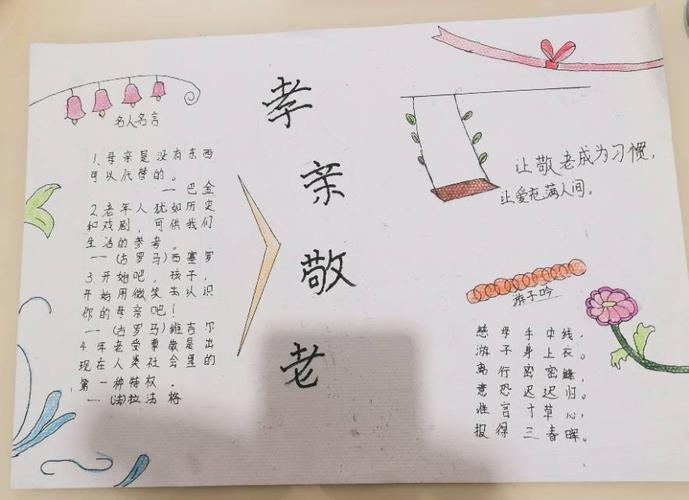 名人名言
1.母亲是没有东西
可以代替的。
— 巴金
2.老年人犹如历史
和戏剧，可供我们
生活的参考。
—(古罗马)西塞罗
3.开始吧，孩子，
开始用微笑去认识
你的母亲吧！
—(古罗马)维吉尔
4.年老受尊敬是出
现在人类社会里的
第一种特权．
—(法)拉法格
孝
亲
敬
老
让敬老成为习惯，
让爱充满人间。
游子吟
慈母手中线，
游子身上衣。
离行密密缝，
意恐迟迟归。
谁言寸草心，
报得三春晖。